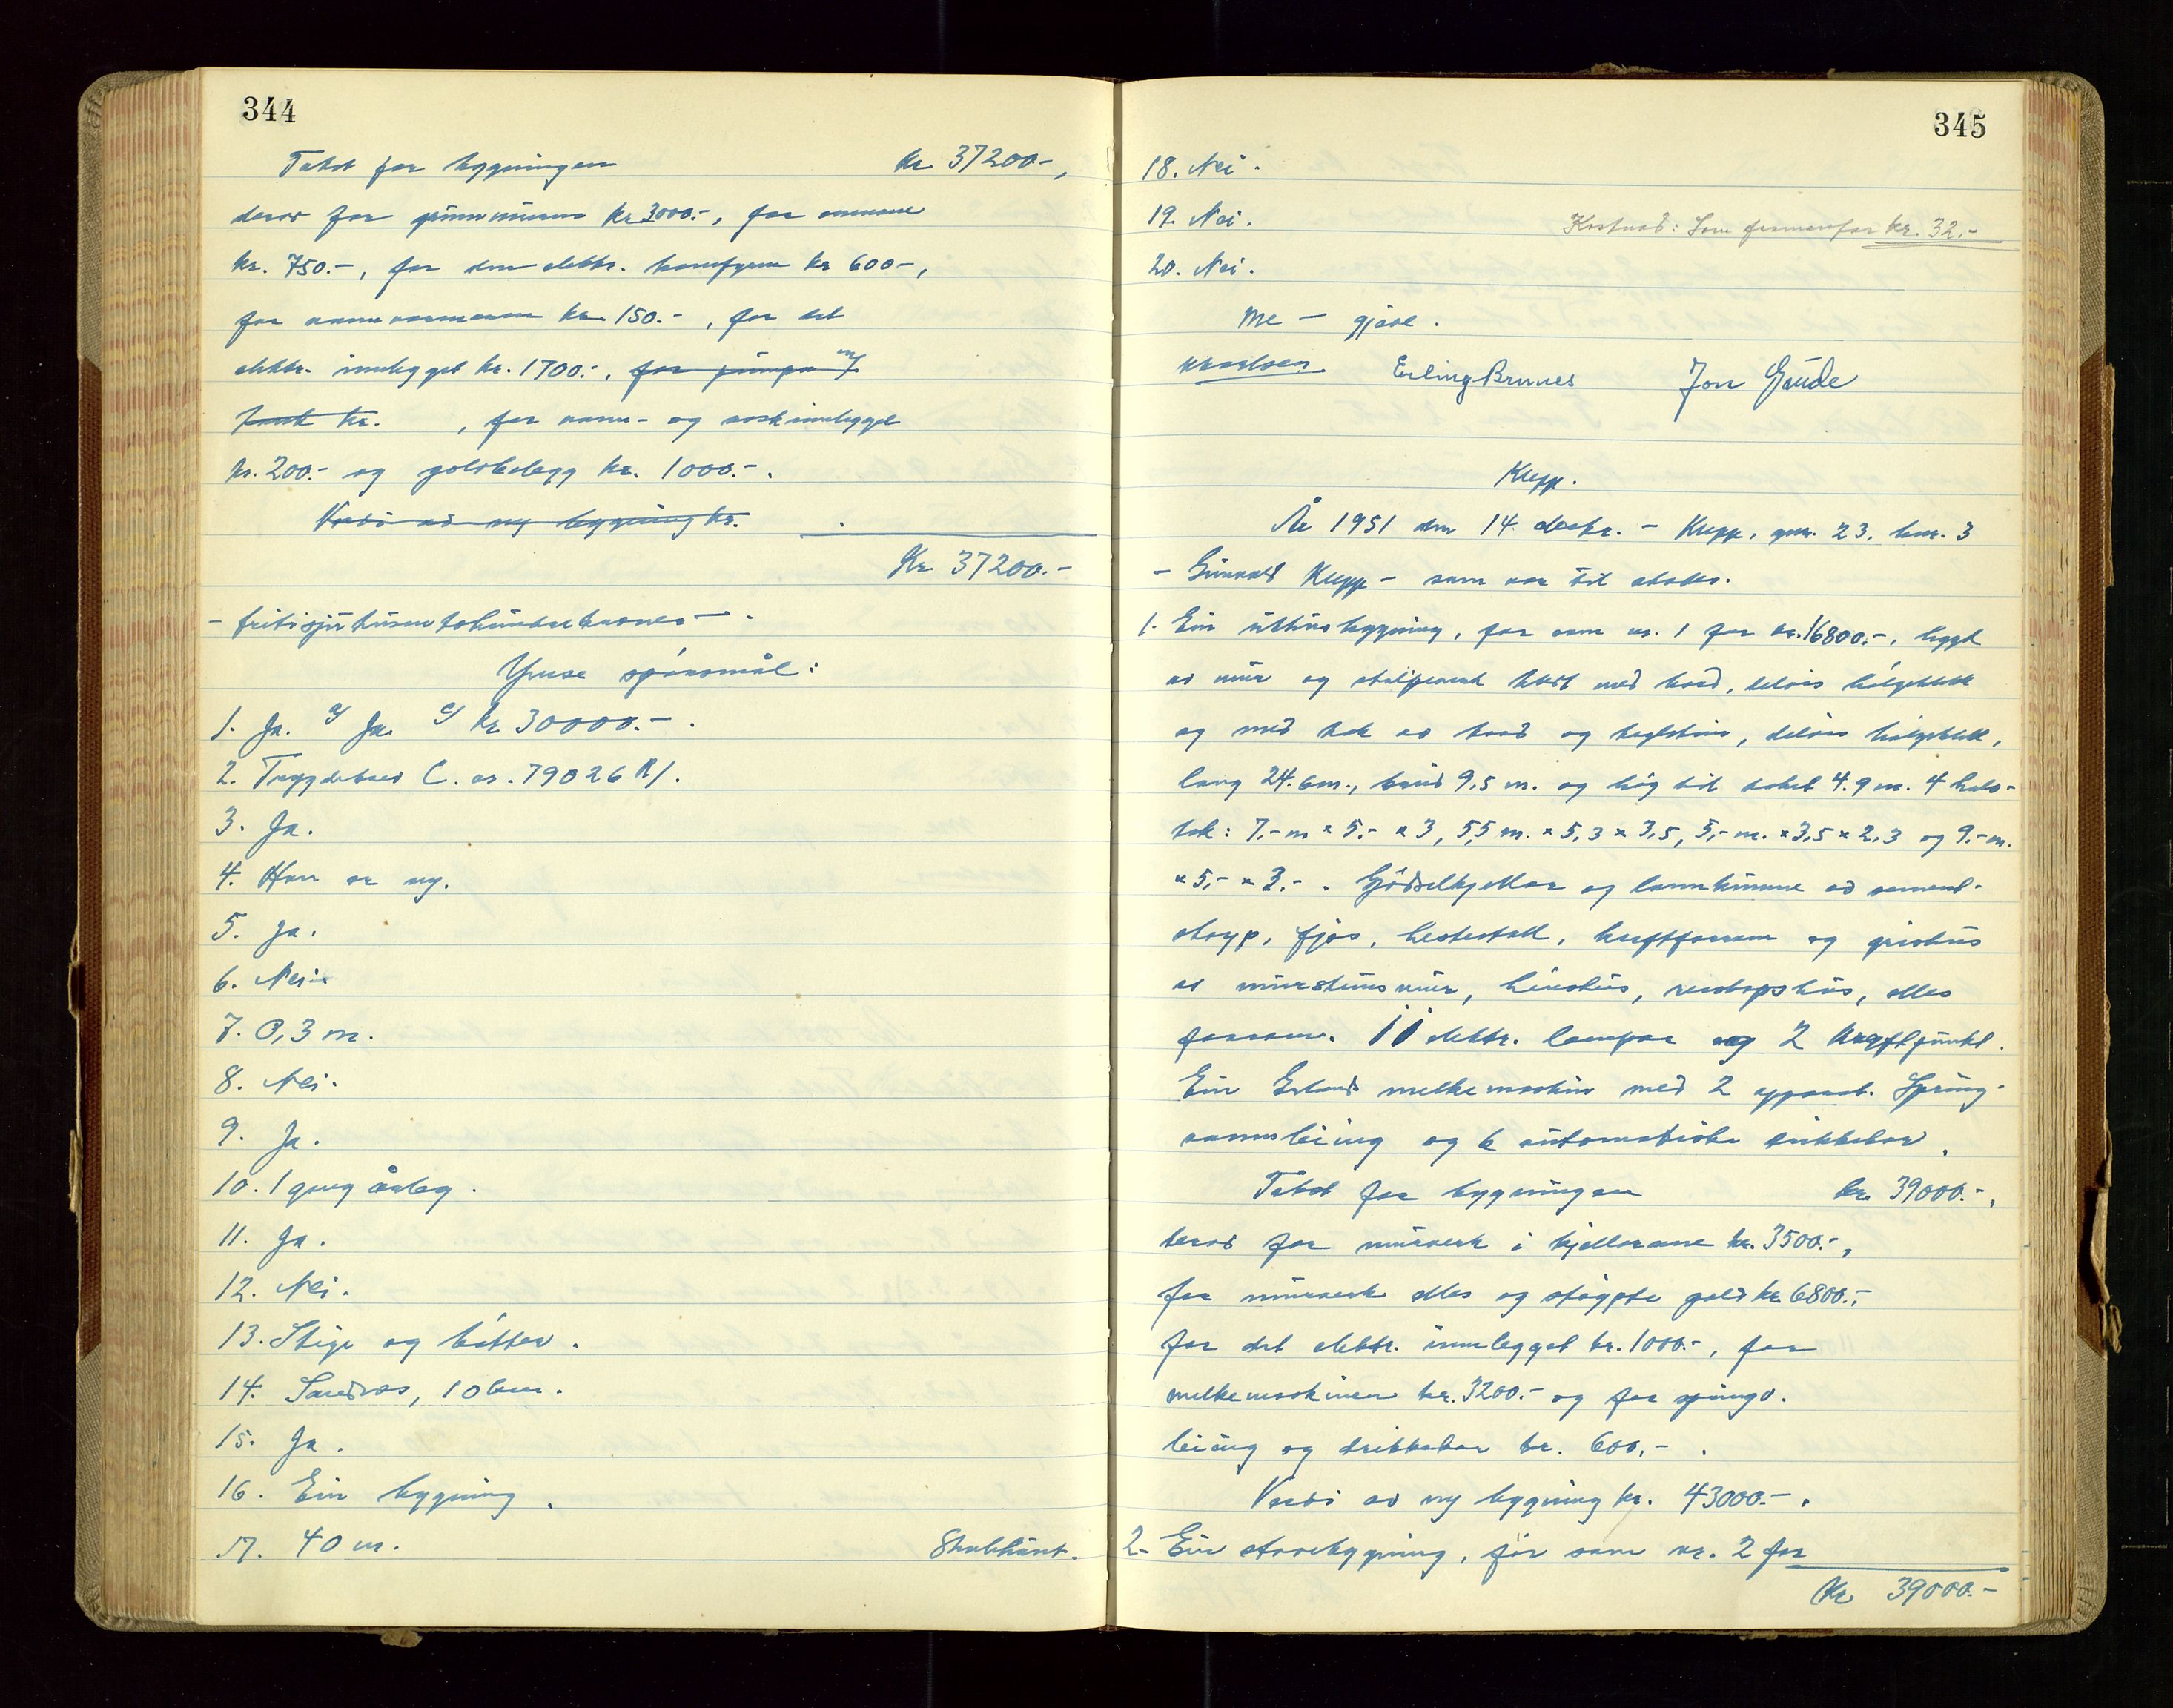 344
Takst for bygningen kr 37200.-,
derav for grunnmuren kr 3000.-, for omnane
kr. 750.-, for den elektr. komfyren kr 600.-,
for vannvarmaren kr. 150.-, for det
elektr. innlegget kr. 1700.-, for pumpa m/
tank kr. , for vann- og vaskinnlegget
kr. 200.- og golvbelegg kr. 1000.-.
Verdi av ny bygning kr. .
Kr 37200.-
- fritisjuhusentohundrekroner - .
Ymse spørsmål:
1. Ja. b/ Ja. c/ kr 30000.-.
2. Trygdebrev C. nr. 79026 R/.
3. Ja.
4. Han er ny.
5. Ja.
6. Nei.
7. 0,3 m.
8. Nei.
9. Ja.
10. 1 gang årleg.
11. Ja.
12. Nei.
13. Stige og bøtter.
14. Sandnes, 10 km.
15. Ja.
16. Ein bygning.
17. 40 m.
345
18. Nei.
19. Nei.
20. Nei.
Kostnad: Som framanfor kr. 32.-
Me - gjove.
Erling Brunes Jon Gaude
Klepp.
År 1951 den 14. desbr. - Klepp, gnr. 23, bnr. 3
- Gunvald Klepp - som var til stades.
1. Ein uthusbygning, før som nr. 1 for kr. 16800.-, bygt
av mur og stolpeverk kledt med bord, delvis bølgeblekk
og med tak av bord og teglstein, delvis bølgeblekk,
lang 24.6 m., breid 9,5 m. og høg til taket 4.9 m. 4 halv-
tak: 7.- m × 5.- × 3, 5,5 m. × 5,3 × 3,5, 5,- m. × 3,5 × 2,3 og 9.- m.
× 5,- × 3.-. Gjødselkjellar og landkumme av sement-
støyp, fjøs, hestestall, kraftforrom og grishus
av mursteinsmur, hønshus, reidskapshus, elles
forrom. 11 elektr. lampor og 2 kraftpunkt.
Ein melkemaskin med 2 apparat. Spring-
vannsleiing og 6 automatiske drikkekar.
Takst for bygningen kr. 39000.-,
derav for murverk i kjellarane kr. 3500.-,
for murverk elles og støypte golv kr 6800.-,
for det elektr. innlegget kr. 1000.-, for
melkemaskinen kr. 3200.- og for springv.
leiing og drikkekar kr. 600.- .
Verdi av ny bygning kr. 43000.-.
2. Ein stovebygning, før som nr. 2 for
Kr 39000.-